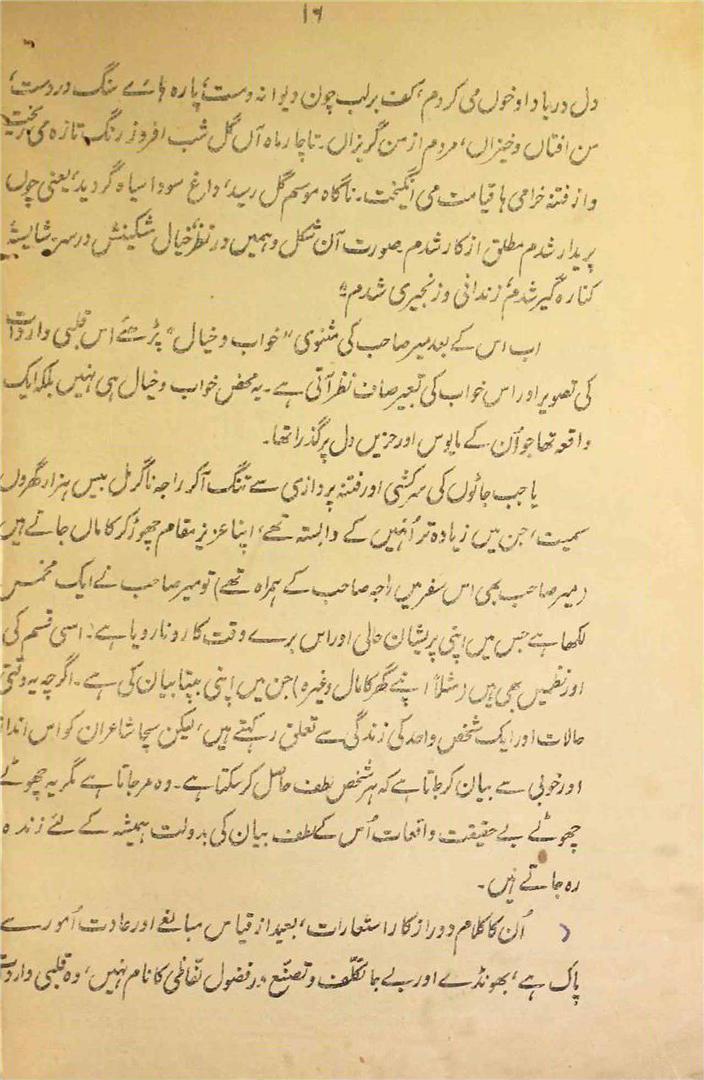 ۱۶
دل در یاد او خوں می کردم، کف برلب چون دیوانہ و مست، پارہ ہائے سنگ در دست،
من افتاں و خیزاں، مردم از من گریزاں۔ تا چار ماہ آں گل شب افروز رنگ تازہ می ریخت
و از فتنہ خرامی ہا قیامت می انگیخت۔ ناگاہ موسم گل رسید، داغ سودا سیاہ گردید، یعنی چوں
پریدار شدم مطلق از کار شدم۔ صورت آن شکل وہمیں در نظر، خیال مشکینش در سر۔ شایستۂ
کنارہ گیر شدم، زندانی و زنجیری شدم"
اب اس کے بعد میر صاحب کی مثنوی "خواب و خیال" پڑھئے اس قلبی واردات
کی تصویر اور اس خواب کی تعبیر صاف نظر آتی ہے۔ یہ محض خواب و خیال ہی نہیں بلکہ ایک
واقعہ تھا جو اُن کے مایوس اور حزیں دل پر گذرا تھا۔
یا جب جاٹوں کی سرکشی اور فتنہ پردازی سے تنگ آکر راجہ ناگر مل بیس ہزار گھروں
سمیت، جن میں زیادہ تر اُنہیں کے وابستہ تھے، اپنا عزیز مقام چھوڑ کر کاماں جاتے ہیں
(میر صاحب بھی اس سفر میں راجہ صاحب کے ہمراہ تھے) تو میر صاحب نے ایک مخمس
لکھا ہے جس میں اپنی پریشان حالی اور اس برے وقت کا رونا رویا ہے۔ اسی قسم کی
اور نظمیں بھی ہیں (مثلاً اپنے گھر کا حال وغیرہ) جن میں اپنی بپتا بیان کی ہے۔ اگرچہ یہ وقتی
حالات اور ایک شخص واحد کی زندگی سے تعلق رکھتے ہیں، لیکن سچا شاعر ان کو اس انداز
اور خوبی سے بیان کر جاتا ہے کہ ہر شخص لطف حاصل کر سکتا ہے۔ وہ مر جاتا ہے مگر یہ چھوٹے
چھوٹے بے حقیقت واقعات اُس کے لطف بیان کی بدولت ہمیشہ کے لئے زندہ
رہ جاتے ہیں۔
اُن کا کلام دور از کار استعارات، بعید از قیاس مبالغے اور عادت اُمور سے
پاک ہے، بھونڈے اور بے جا تکلّف و تصنّع در فضول لفّاظی کا نام نہیں، وہ قلبی واردات